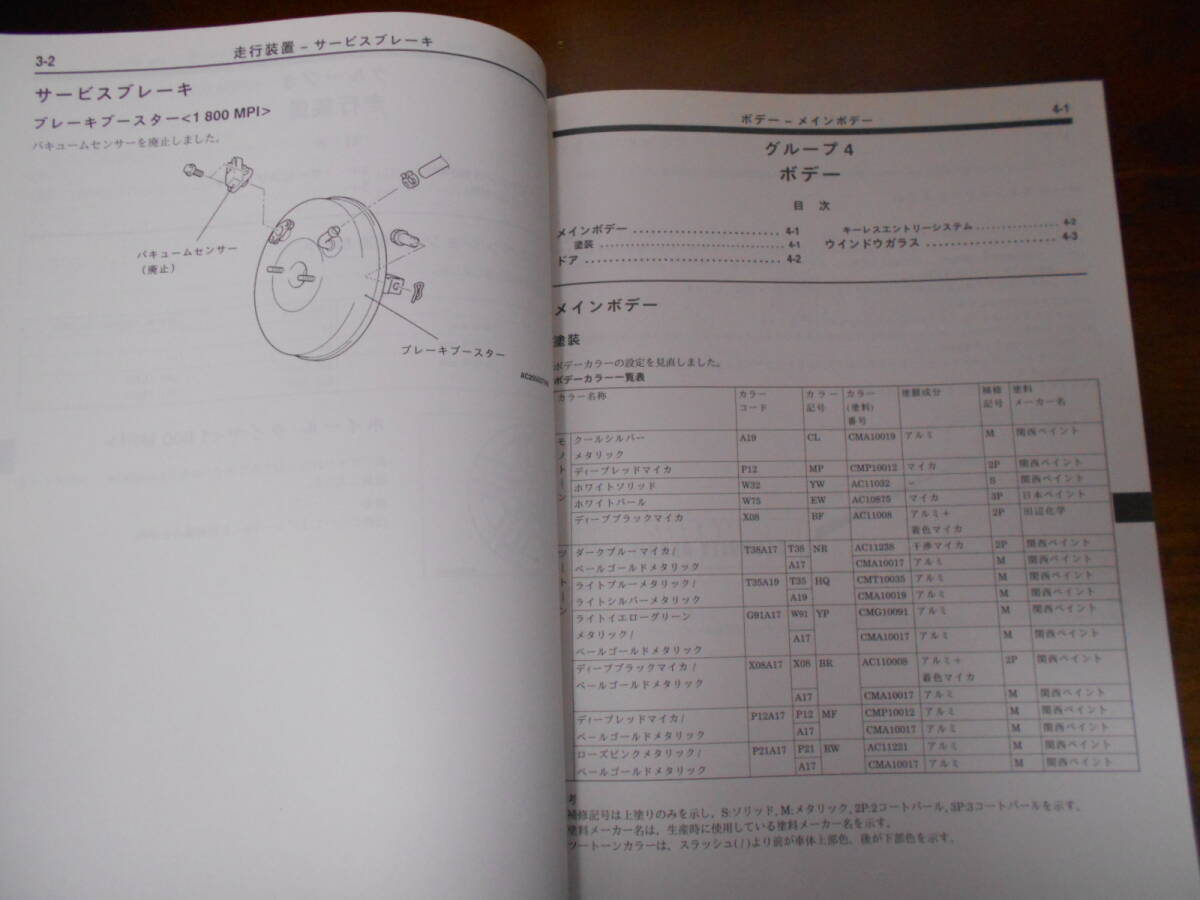 3-2
走行装置 − サービスブレーキ
サービスブレーキ
ブレーキブースター<1 800 MPI>
バキュームセンサーを廃止しました。
バキュームセンサー
(廃止)
ブレーキブースター
ボデー − メインボデー
4-1
グループ 4
ボデー
目 次
メインボデー ........................ 4-1
塗装 ........................ 4-1
ドア ........................ 4-2
キーレスエントリーシステム ........................ 4-2
ウインドウガラス ........................ 4-3
メインボデー
塗装
ボデーカラーの設定を見直しました。
ボデーカラー一覧表
カラー名称 カラーコード カラー記号 カラー(塗料)番号 塗膜成分 補修記号 塗料メーカー名
モノトーン
クールシルバーメタリック A19 CL CMA10019 アルミ M 関西ペイント
ディープレッドマイカ P12 MP CMP10012 マイカ 2P 関西ペイント
ホワイトソリッド W32 YW AC11032 − S 関西ペイント
ホワイトパール W75 EW AC10875 マイカ 3P 日本ペイント
ディープブラックマイカ X08 BF AC11008 アルミ+着色マイカ 2P 田辺化学
ツートーン
ダークブルーマイカ/ T38A17 T38 NR AC11238 干渉マイカ 2P 関西ペイント
ペールゴールドメタリック A17 CMA10017 アルミ M 関西ペイント
ライトブルーメタリック/ T35A19 T35 HQ CMT10035 アルミ M 関西ペイント
ライトシルバーメタリック A19 CMA10019 アルミ M 関西ペイント
ライトイエローグリーンメタリック/ G91A17 W91 YP CMG10091 アルミ M 関西ペイント
ペールゴールドメタリック A17 CMA10017 アルミ M 関西ペイント
ディープブラックマイカ/ X08A17 X08 BR AC110008 アルミ+着色マイカ 2P 関西ペイント
ペールゴールドメタリック A17 CMA10017 アルミ M 関西ペイント
ディープレッドマイカ/ P12A17 P12 MF CMP10012 アルミ M 関西ペイント
ペールゴールドメタリック A17 CMA10017 アルミ M 関西ペイント
ローズピンクメタリック/ P21A17 P21 RW AC11221 アルミ M 関西ペイント
ペールゴールドメタリック A17 CMA10017 アルミ M 関西ペイント
考
補修記号は上塗りのみを示し, S:ソリッド, M:メタリック, 2P:2コートパール, 3P:3コートパールを示す。
塗料メーカー名は、生産時に使用している塗料メーカー名を示す。
ツートーンカラーは、スラッシュ(/)より前が車体上部色、後が下部色を示す。